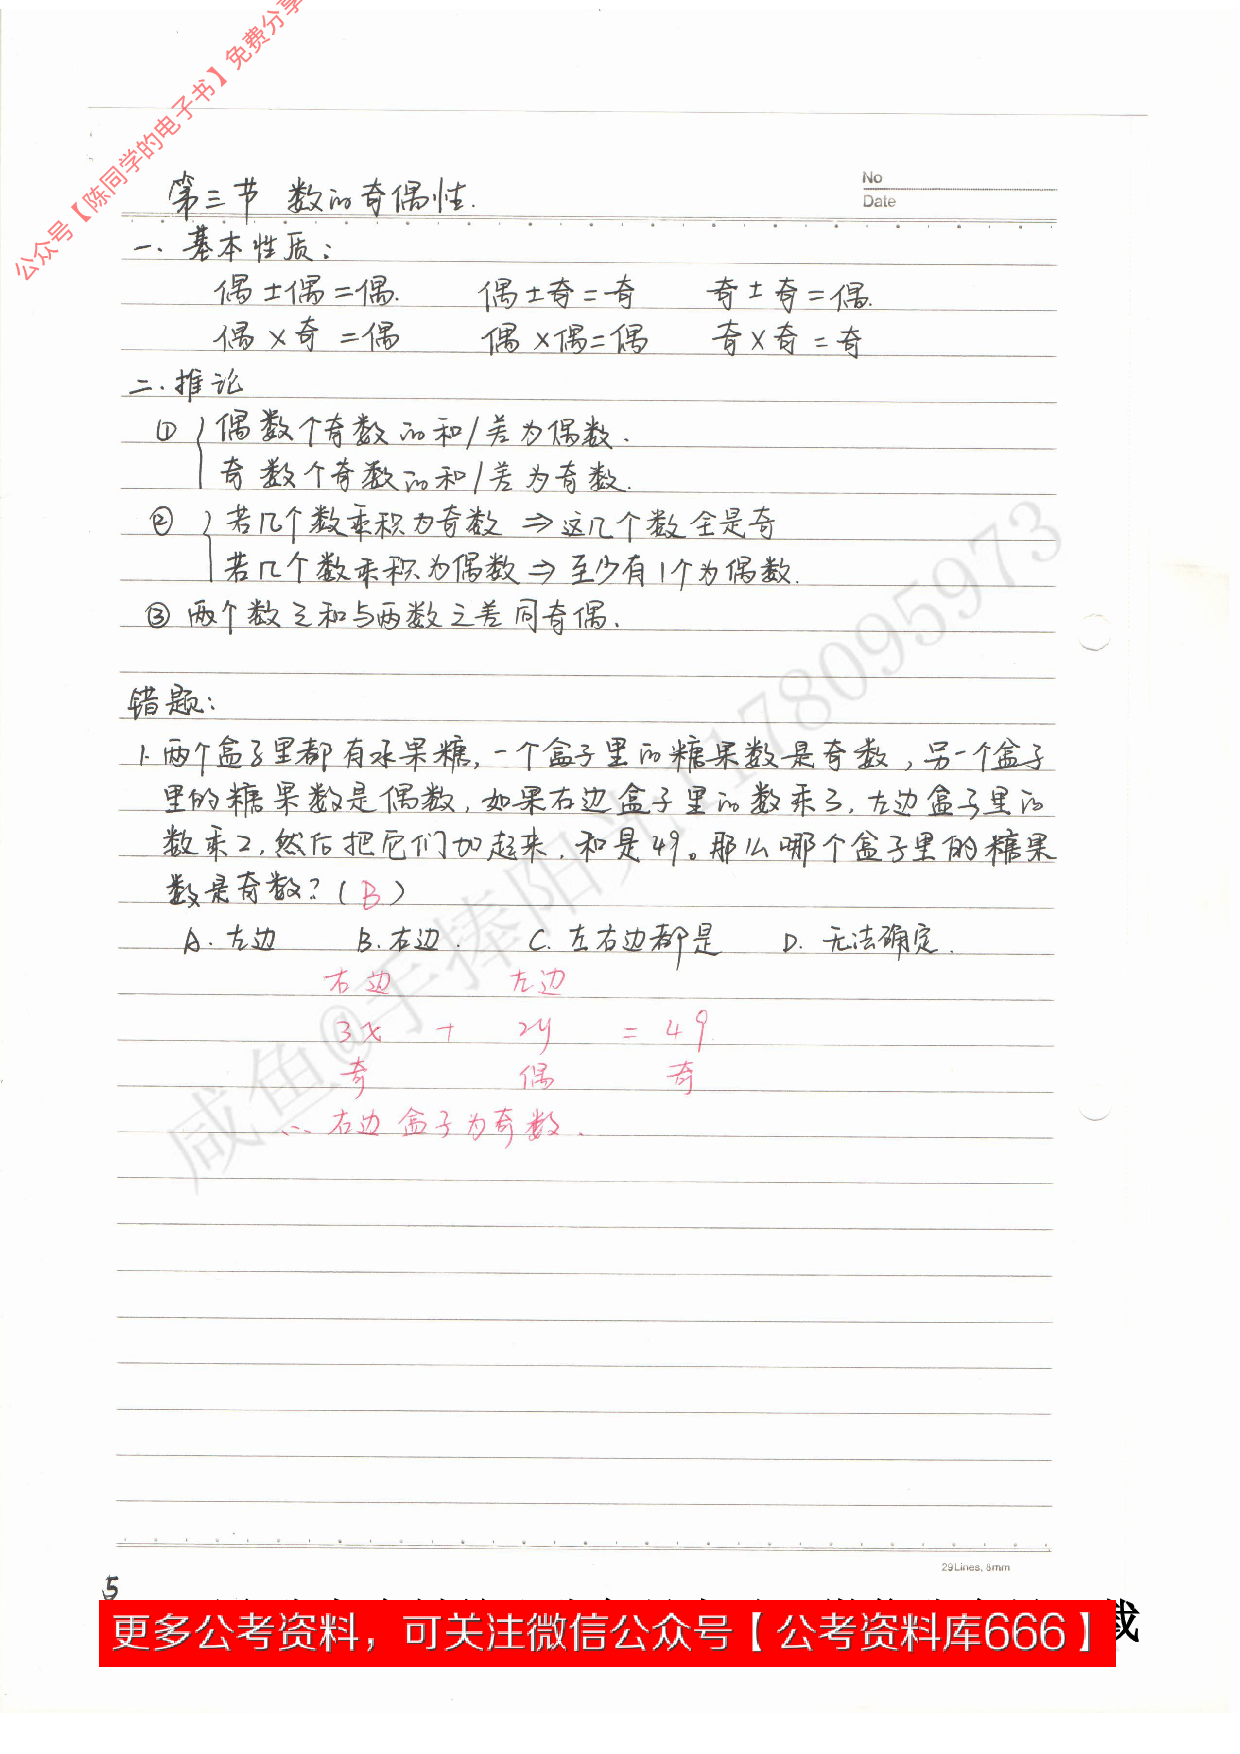 公众号【陈同学的电子书】免费分享
No
Date
第三节 数的奇偶性.
一. 基本性质:
偶±偶=偶. 偶±奇=奇 奇±奇=偶.
偶×奇=偶 偶×偶=偶 奇×奇=奇
二. 推论
① 偶数个奇数的和/差为偶数.
奇数个奇数的和/差为奇数.
② 若几个数乘积为奇数 ⇒ 这几个数全是奇
若几个数乘积为偶数 ⇒ 至少有1个为偶数.
③ 两个数之和与两数之差同奇偶.
错题:
1. 两个盒子里都有水果糖, 一个盒子里的糖果数是奇数, 另一个盒子
里的糖果数是偶数, 如果右边盒子里的数乘3, 左边盒子里的
数乘2, 然后把它们加起来, 和是49。那么哪个盒子里的糖果
数是奇数? (B)
A. 左边 B. 右边. C. 左右边都是 D. 无法确定.
右边 左边
3x + 2y = 49
奇 偶 奇
∴ 右边盒子为奇数.
咸鱼@手捧阳光1178095973
29Lines, 8mm
5
更多公考资料，可关注微信公众号【公考资料库666】
载